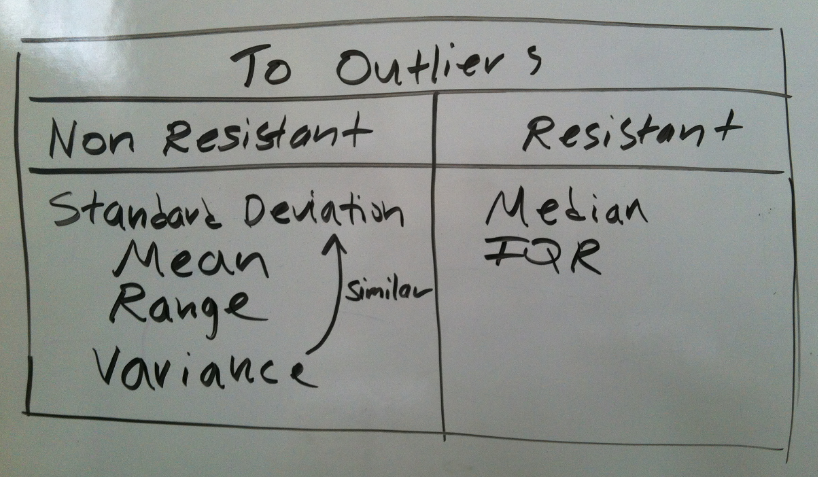 To Outliers
Non Resistant
Resistant
Standard Deviation
Mean
Range
Variance
Similar
Median
IQR